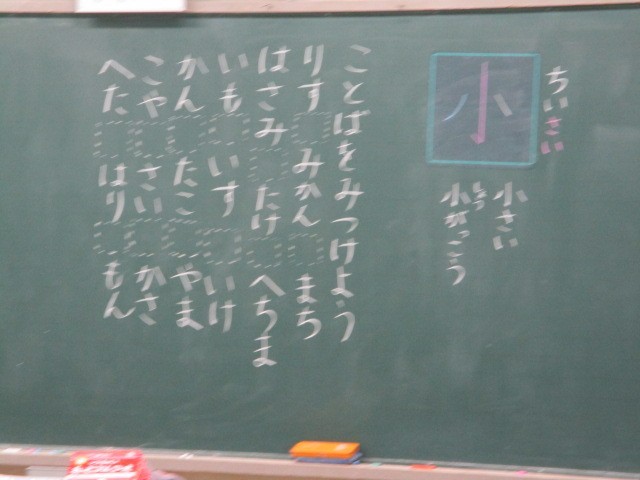 ちいさい
小
小さい
しょう
小がっこう
ことばをみつけよう
りす みかん まち
はさみ たけ へちま
いも いす いけ
かん たこ やま
こや さい かさ
へた はり もん